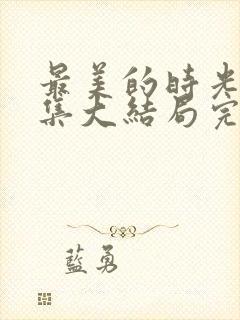 最美的時光
集大結局完
藍勇